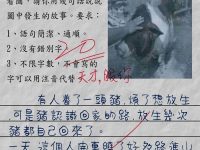 看圖，請你用幾句話說說
圖中發生的故事。要求：
1、語句簡潔、通順。
2、沒有錯別字。
3、不限字數，不會寫的
字可以用注音代替
天才
有人養了一頭豬，煩了想放生
可是豬認識回家的路，放生幾次
豬都自己回來了。
一天，這個人開車